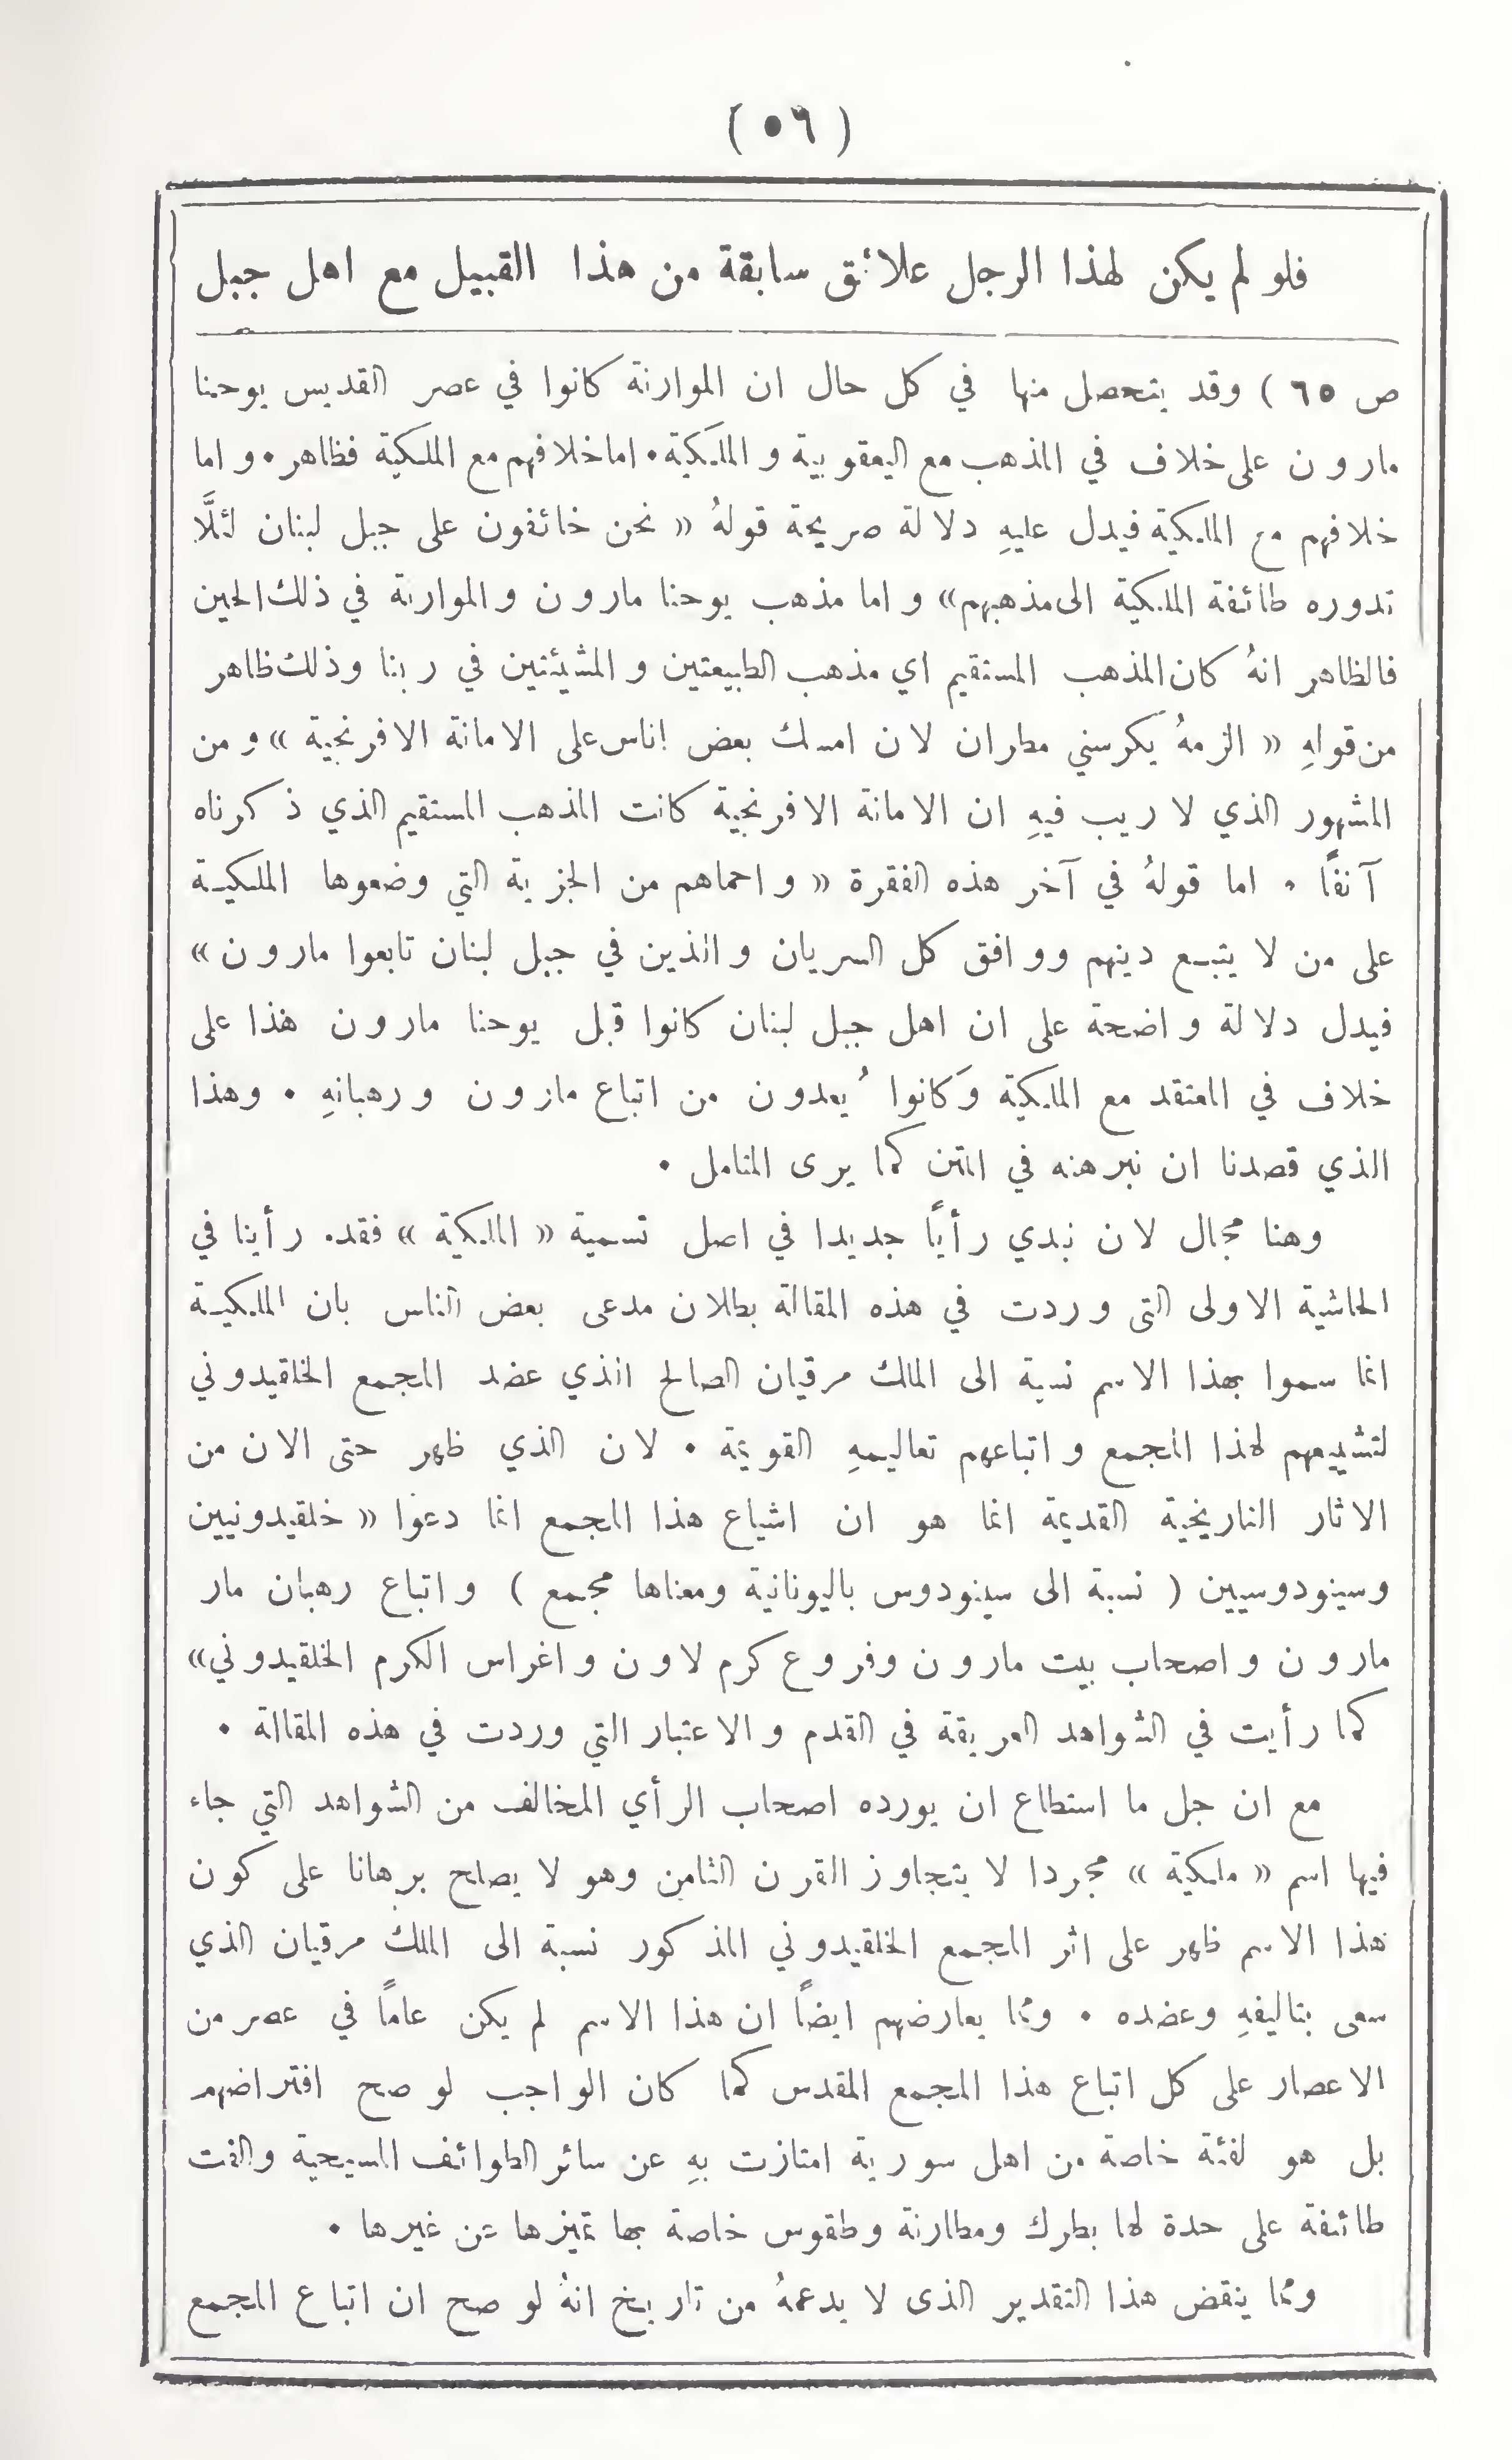 ( ٥٦ )
فلو لم يكن لهذا الرجل علائق سابقة من هذا القبيل مع اهل جبل
ص ٦٥ ) وقد يتحصل منها في كل حال ان الموارنة كانوا في عصر القديس يوحنا
مارون على خلاف في المذهب مع اليعقوبية والملكية • اما خلافهم مع الملكية فظاهر • واما
خلافهم مع الملكية فيدل عليهِ دلالة صريحة قولهُ « نحن خائفون على جبل لبنان لئلَّا
تدوره طائفة الملكية الى مذهبهم» واما مذهب يوحنا مارون والموارنة في ذلك الحين
فالظاهر انهُ كان المذهب المستقيم اي مذهب الطبيعتين والمشيئتين في ربنا وذلك ظاهر
من قولهِ « الزمهُ يكرسني مطران لان امسك بعض اناس على الامانة الافرنجية » ومن
المشهور الذي لا ريب فيهِ ان الامانة الافرنجية كانت المذهب المستقيم الذي ذكرناه
آنفاً • اما قولهُ في آخر هذه الفقرة « واحماهم من الجزية التي وضعوها الملكية
على من لا يتبع دينهم ووافق كل السريان والذين في جبل لبنان تابعوا مارون »
فيدل دلالة واضحة على ان اهل جبل لبنان كانوا قبل يوحنا مارون هذا على
خلاف في المعتقد مع الملكية وكانوا يُعدون من اتباع مارون ورهبانهِ • وهذا
الذي قصدنا ان نبرهنه في المتن كما يرى المتامل •
وهنا مجال لان نبدي رأياً جديدا في اصل تسمية « الملكية » فقد رأينا في
الحاشية الاولى التى وردت في هذه المقالة بطلان مدعى بعض الناس بان الملكية
انما سموا بهذا الاسم نسبة الى الملك مرقيان الصالح الذي عضد المجمع الخلقيدوني
لتشييعهم لهذا المجمع واتباعهم تعاليمهِ القويمة • لان الذي ظهر حتى الان من
الاثار التاريخية القديمة انما هو ان اشياع هذا المجمع انما دعوا « خلقيدونيين
وسينودوسيين ( نسبة الى سينودوس باليونانية ومعناها مجمع ) واتباع رهبان مار
مارون واصحاب بيت مارون وفروع كرم لاون واغراس الكرم الخلقيدوني»
كما رأيت في الشواهد العريقة في القدم والاعتبار التي وردت في هذه المقالة •
مع ان جل ما استطاع ان يورده اصحاب الرأي المخالف من الشواهد التي جاء
فيها اسم « ملكية » مجردا لا يتجاوز القرن الثامن وهو لا يصلح برهانا على كون
هذا الاسم ظهر على اثر المجمع الخلقيدوني المذكور نسبة الى الملك مرقيان الذي
سعى بتاليفهِ وعضده • ومما يعارضهم ايضاً ان هذا الاسم لم يكن عاماً في عصر من
الاعصار على كل اتباع هذا المجمع المقدس كما كان الواجب لو صح افتراضهم
بل هو لفئة خاصة من اهل سورية امتازت بهِ عن سائر الطوائف المسيحية والفت
طائفة على حدة لها بطرك ومطارنة وطقوس خاصة بها تميزها عن غيرها •
ومما ينقض هذا التقدير الذى لا يدعمهُ من تاريخ انهُ لو صح ان اتباع المجمع